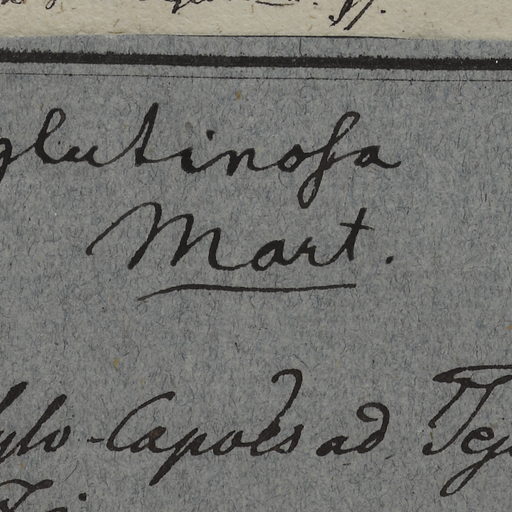 glutinosa
Mart.
Sylo-Capoẽs ad Tej